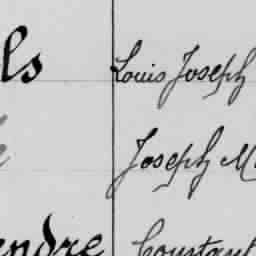 ls Louis Joseph
Joseph M
endre Constant